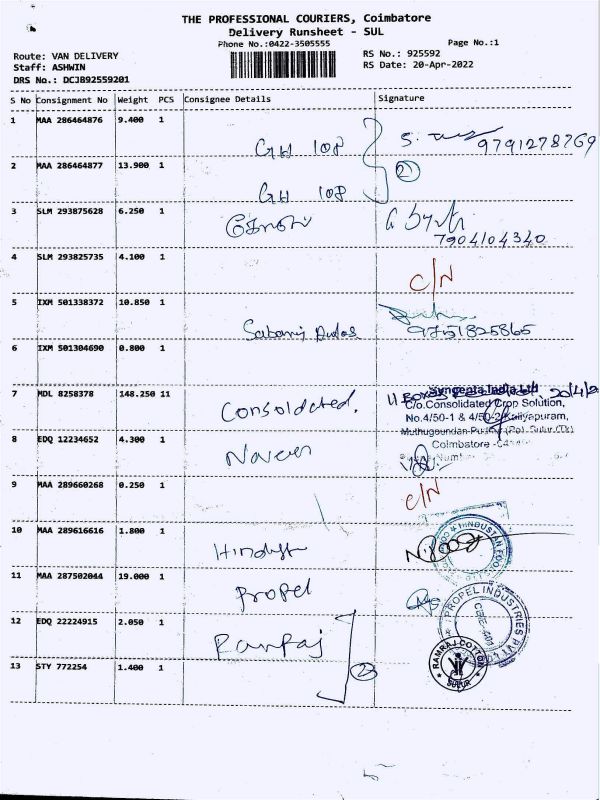 THE PROFESSIONAL COURIERS, Coimbatore
Delivery Runsheet - SUL
Phone No.:0422-3505555
Page No.:1
Route: VAN DELIVERY
RS No.: 925592
Staff: ASHWIN
RS Date: 20-Apr-2022
DRS No.: DCJB92559201
S No Consignment No Weight PCS Consignee Details Signature
1 MAA 286464876 9.400 1
9791278769
2 MAA 286464877 13.900 1
GH 108
(2)
GH 108
3 SLM 293875628 6.250 1
7904104340
4 SLM 293825735 4.100 1
C/N
5 IXM 501338372 10.850 1
9751825865
6 IXM 501304690 0.800 1
7 MDL 8258378 148.250 11
Consoldated.
11 Boxes 20/4/2
Syngenta India Ltd
C/o.Consolidated Crop Solution,
No.4/50-1 & 4/50-2 Kaliyapuram,
Muthugoundan Pudhur (Po), Sulur (Tk)
Coimbatore
8 EDQ 12234652 4.300 1
Naveen
9 MAA 289660268 0.250 1
C/N
10 MAA 289616616 1.800 1
Hindust
HINDUSTAN FOOD
11 MAA 287502044 19.000 1
Propel
PROPEL INDUSTRIES PVT
12 EDQ 22224915 2.050 1
Ramraj
(2)
13 STY 772254 1.400 1
RAMRAJ COTTON
SULUR